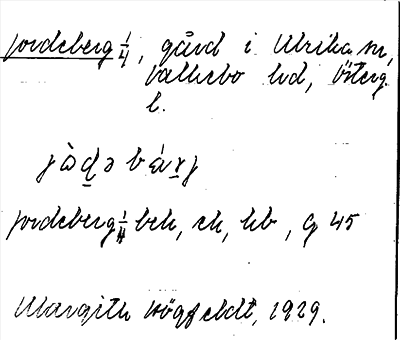 Jordeberg 1/4, gård i Ulrika sn,
Vallebo hd, Österg.
l.
Jordeberg 1/4 beb, ek, hb, G 45
Margith Högfeldt, 1929.